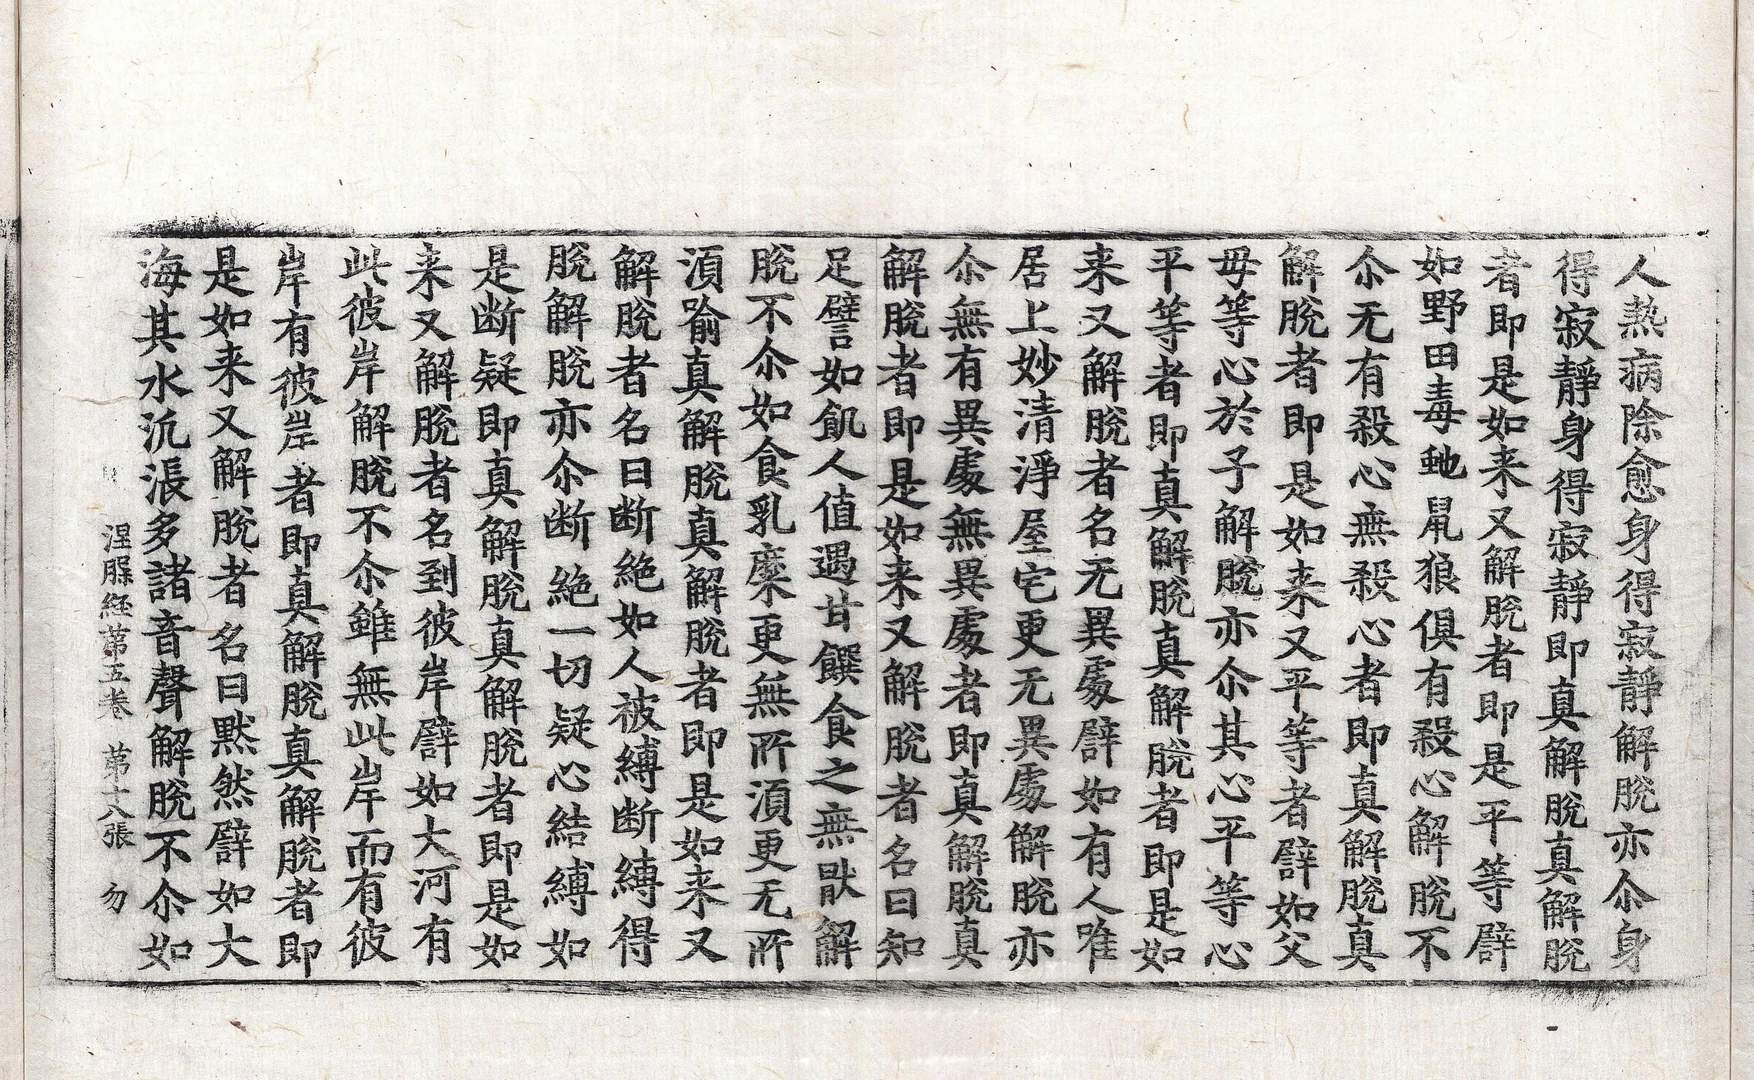 人熱病除愈身得寂靜解脫亦尒身
得寂靜身得寂靜即真解脫真解脫
者即是如来又解脫者即是平等譬
如野田毒虵鼠狼俱有殺心解脫不
尒无有殺心無殺心者即真解脫真
解脫者即是如来又平等者譬如父
母等心於子解脫亦尒其心平等心
平等者即真解脫真解脫者即是如
来又解脫者名无異處譬如有人唯
居上妙清淨屋宅更无異處解脫亦
尒無有異處無異處者即真解脫真
解脫者即是如来又解脫者名曰知
足譬如飢人值遇甘饌食之無猒解
脫不尒如食乳糜更無所湏更无所
湏喻真解脫真解脫者即是如来又
解脫者名曰断絶如人被縛断縛得
脫解脫亦尒断絶一切疑心結縛如
是断疑即真解脫真解脫者即是如
来又解脫者名到彼岸譬如大河有
此彼岸解脫不尒雖無此岸而有彼
岸有彼岸者即真解脫真解脫者即
是如来又解脫者名曰默然譬如大
海其水沉漲多諸音聲解脫不尒如
涅槃経苐五卷 苐十八張 勿